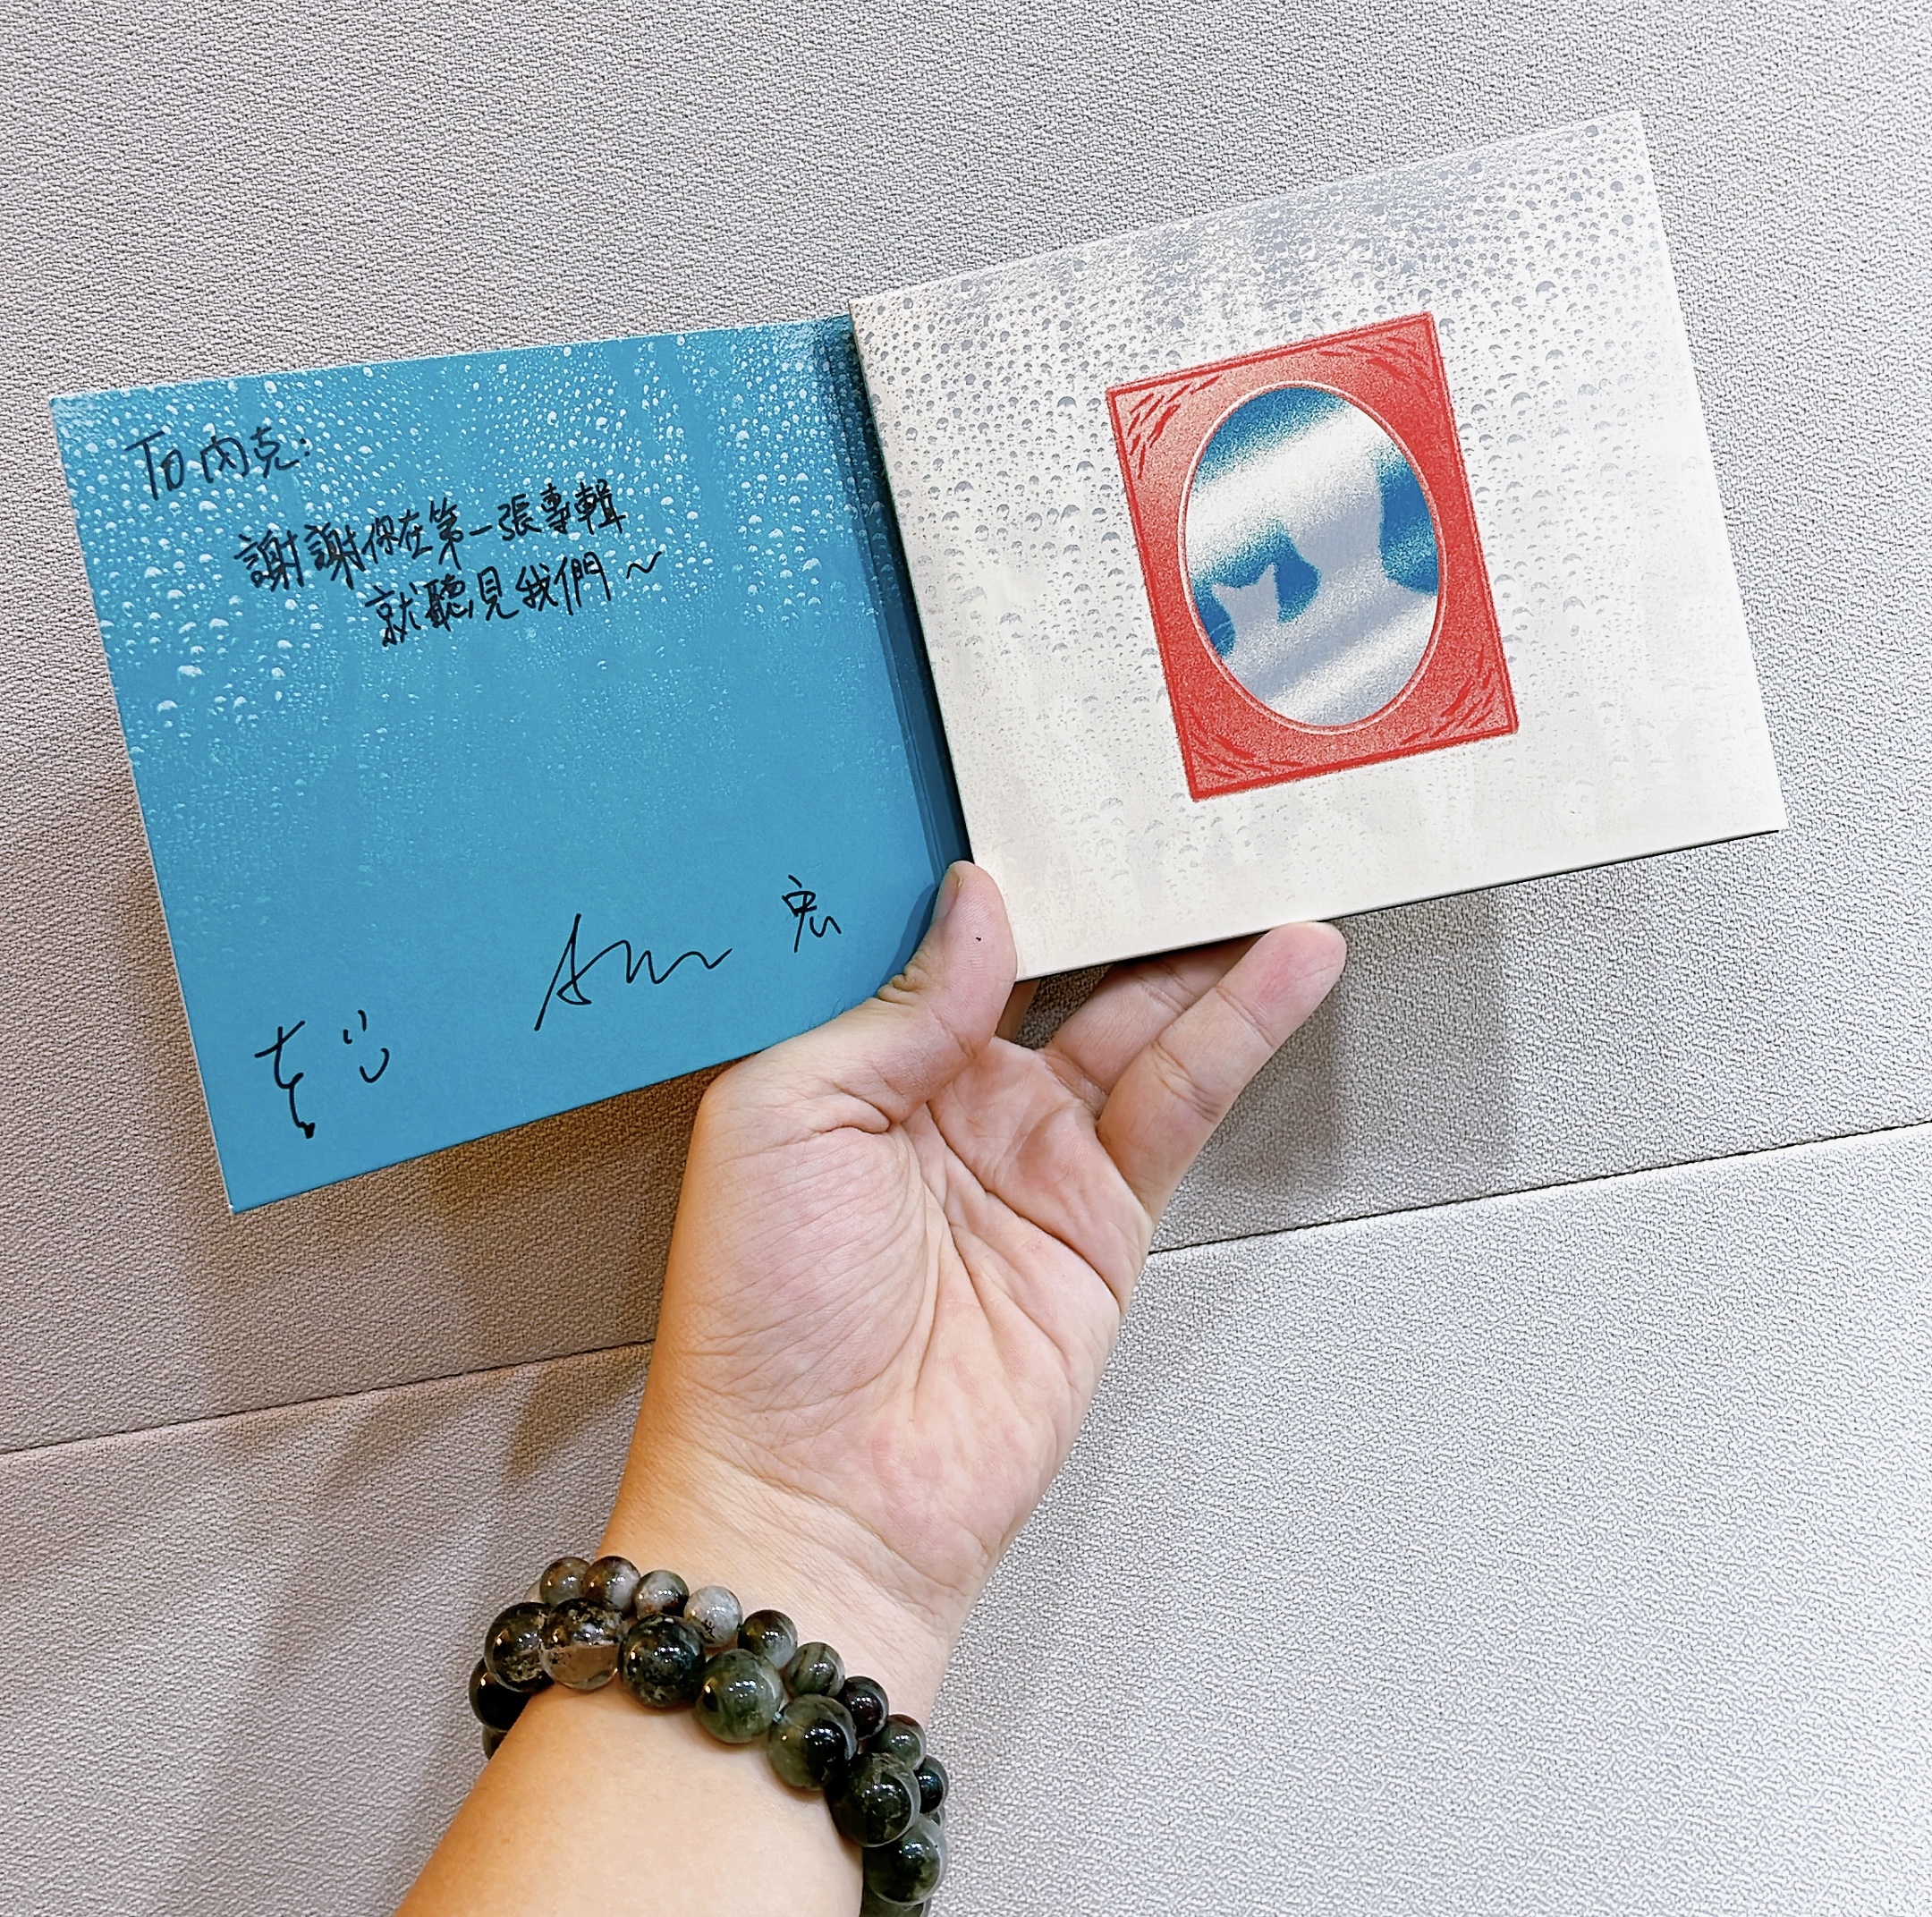 To 內克:
謝謝你在第一張專輯
就聽見我們～
宏